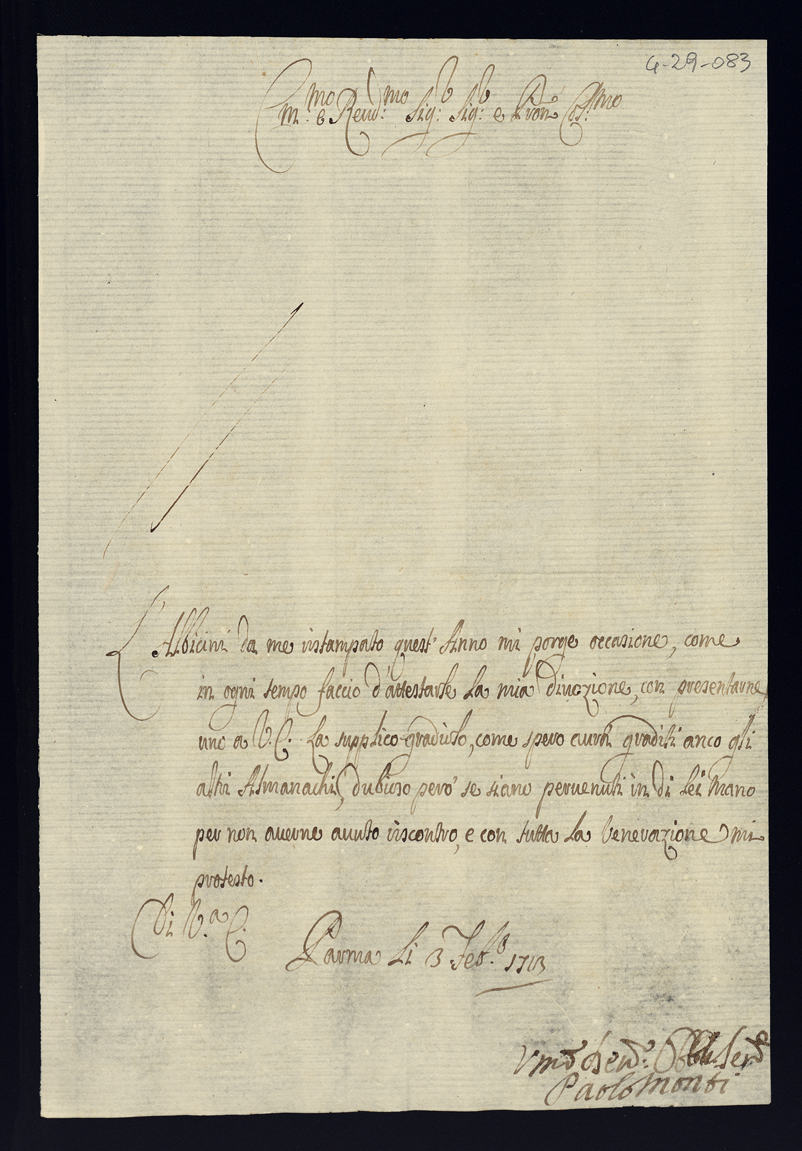 4-29-083
Em:mo e Reud:mo Sig:r Sig:r e Pron Col:mo
L'Albicini da me ristampato quest' Anno mi porge occasione, come
in ogni tempo faccio d'attestarle la mia diuozione, con presentarne
uno a V.E. La supplico gradirlo, come spero aurà graditi anco gli
altri Almanachi, dubioso però se siano peruenuti in di lei Mano
per non auerne auuto riscontro, e con tutta la Venerazione mi
protesto.
Di V.a E.
Parma li 3 Feb.o 1713
Vmo deuo: Obbl: Serre
Paolo Monti